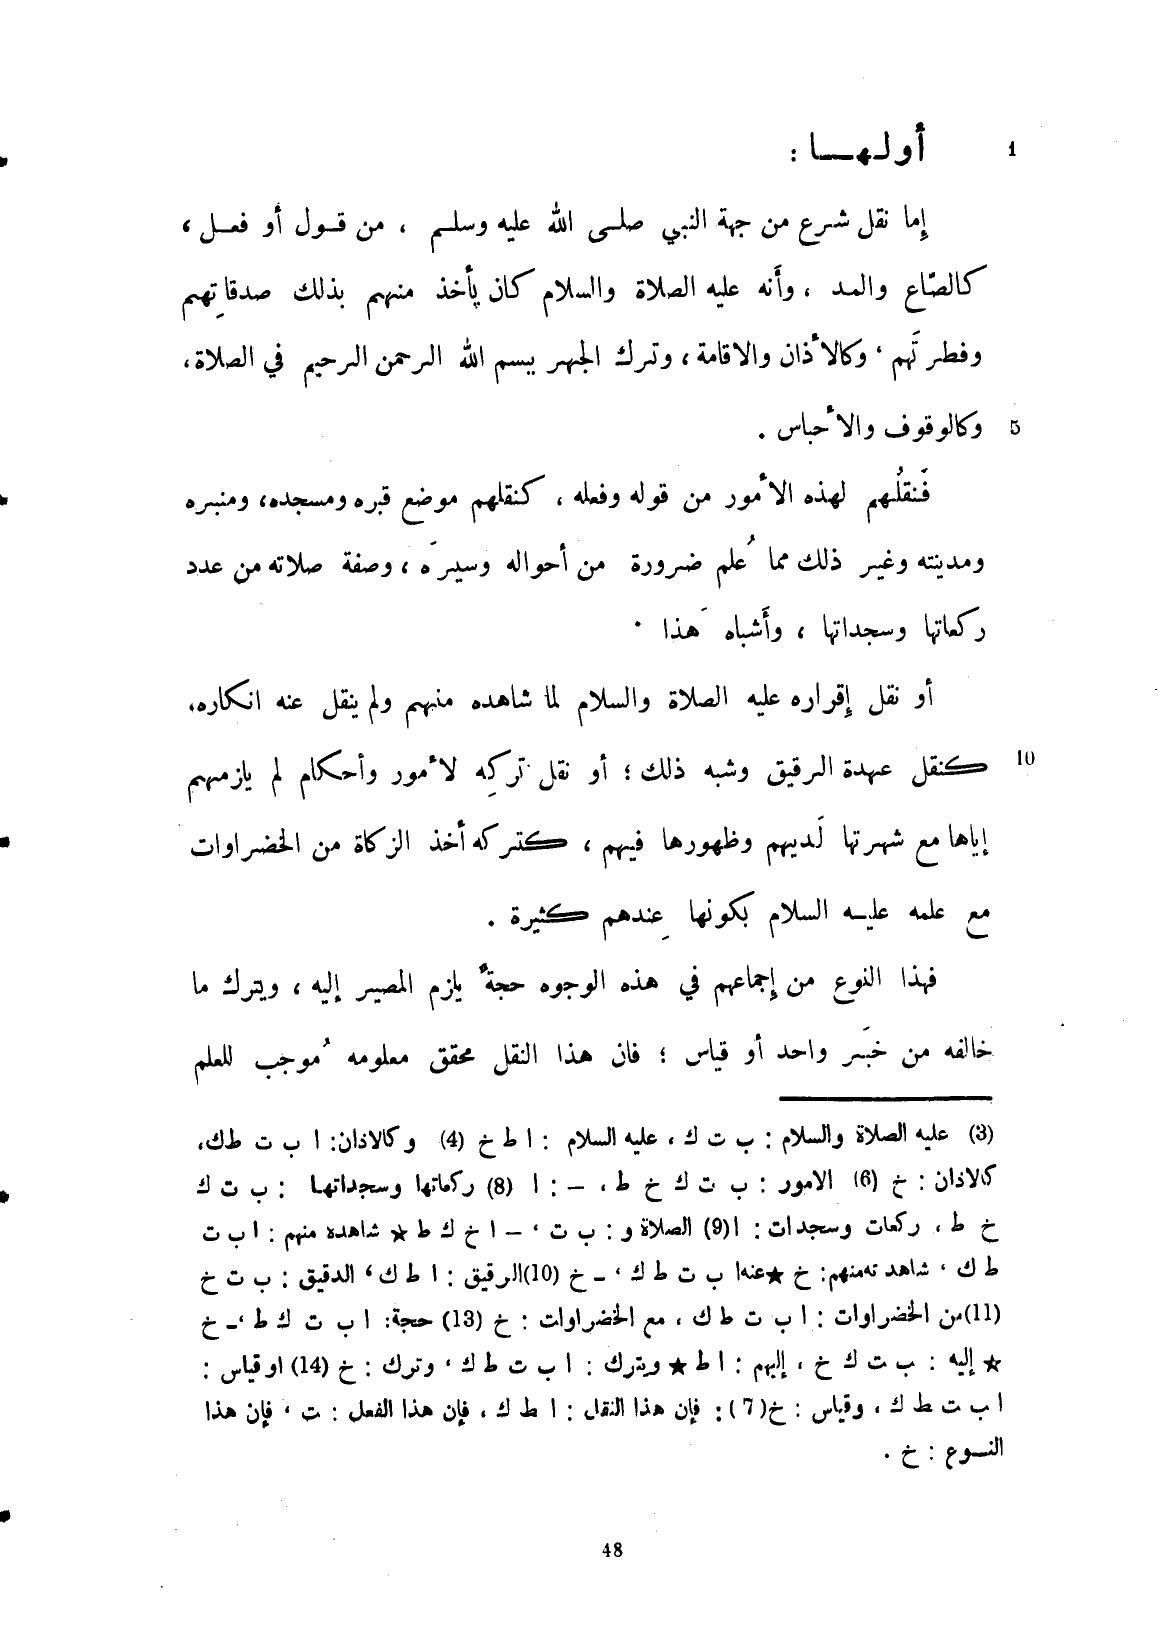 1 أولهـــا :
إما نقل شرع من جهة النبي صلـى الله عليه وسلـم ، من قـول أو فعـل ،
كالصّاع والمـد ، وأَنه عليه الصلاة والسلام كان يأخذ منهم بذلك صدقاتِهم
وفطرتَهم ، وكالأذان والاقامة ، وترك الجهر ببسم الله الرحمن الرحيم في الصلاة ،
5 وكالوقوف والأحباس .
فَنقلُهم لهذه الأمور من قوله وفعله ، كنقلهم موضع قبره ومسجده ، ومنبره
ومدينته وغير ذلك مما عُلم ضرورة من أحواله وسيرَه ، وصفة صلاته من عدد
ركعاتها وسجداتها ، وأَشباه هَذا .
أو نقل إقراره عليه الصلاة والسلام لما شاهده منهم ولم ينقل عنه انكاره ،
10 كنقل عهدة الرقيق وشبه ذلك ؛ أو نقل تركِه لأمور وأحكام لم يلزمهم
إياها مع شهرتها لَديهم وظهورها فيهم ، كتركه أخذ الزكاة من الخضراوات
مع علمه عليـه السلام بكونها عِندهم كثيرة .
فهذا النوع من إجماعهم في هذه الوجوه حجةٌ يلزم المصير إليه ، ويترك ما
خالفه من خبَر واحد أو قياس ؛ فان هذا النقل محقق معلومه مُوجب للعلم
(3) عليه الصلاة والسلام : ب ت ك ، عليه السلام : ا ط خ (4) وكالاذان : ا ب ت ط ك ،
كالاذان : خ (6) الامور : ب ت ك خ ط ، — : ا (8) ركعاتها وسجداتهـا : ب ت ك
خ ط ، ركعات وسجدات : ا (9) الصلاة و : ب ت ، — ا خ ك ط ★ شاهده منهم : ا ب ت
ط ك ، شاهد ته منهم : خ ★ عنه ا ب ت ط ك ، — خ (10) الرقيق : ا ط ك ، الدقيق : ب ت خ
(11) من الخضراوات : ا ب ت ط ك ، مع الخضراوات : خ (13) حجة : ا ب ت ك ط ، — خ
★ إليه : ب ت ك خ ، إليهم : ا ط ★ ويترك : ا ب ت ط ك ، وترك : خ (14) او قياس :
ا ب ت ط ك ، وقياس : خ (7) : فإن هذا النقل : ا ط ك ، فإن هذا الفعل : ت ، فإن هذا
النـوع : خ .
48